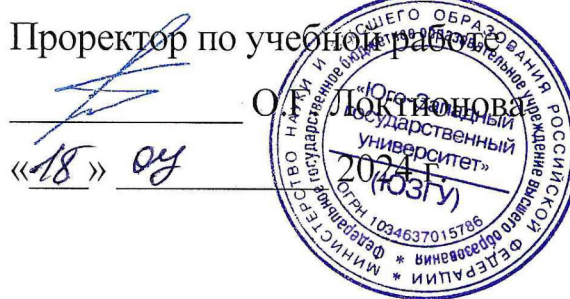 Проректор по учебной работе
О.Г. Локтионова
«18» 04 2024 г.
МИНИСТЕРСТВО НАУКИ И ВЫСШЕГО ОБРАЗОВАНИЯ РОССИЙСКОЙ ФЕДЕРАЦИИ *
Федеральное государственное бюджетное образовательное учреждение высшего образования *
«Юго-Западный
государственный
университет»
(ЮЗГУ)
ОГРН 1034637015786